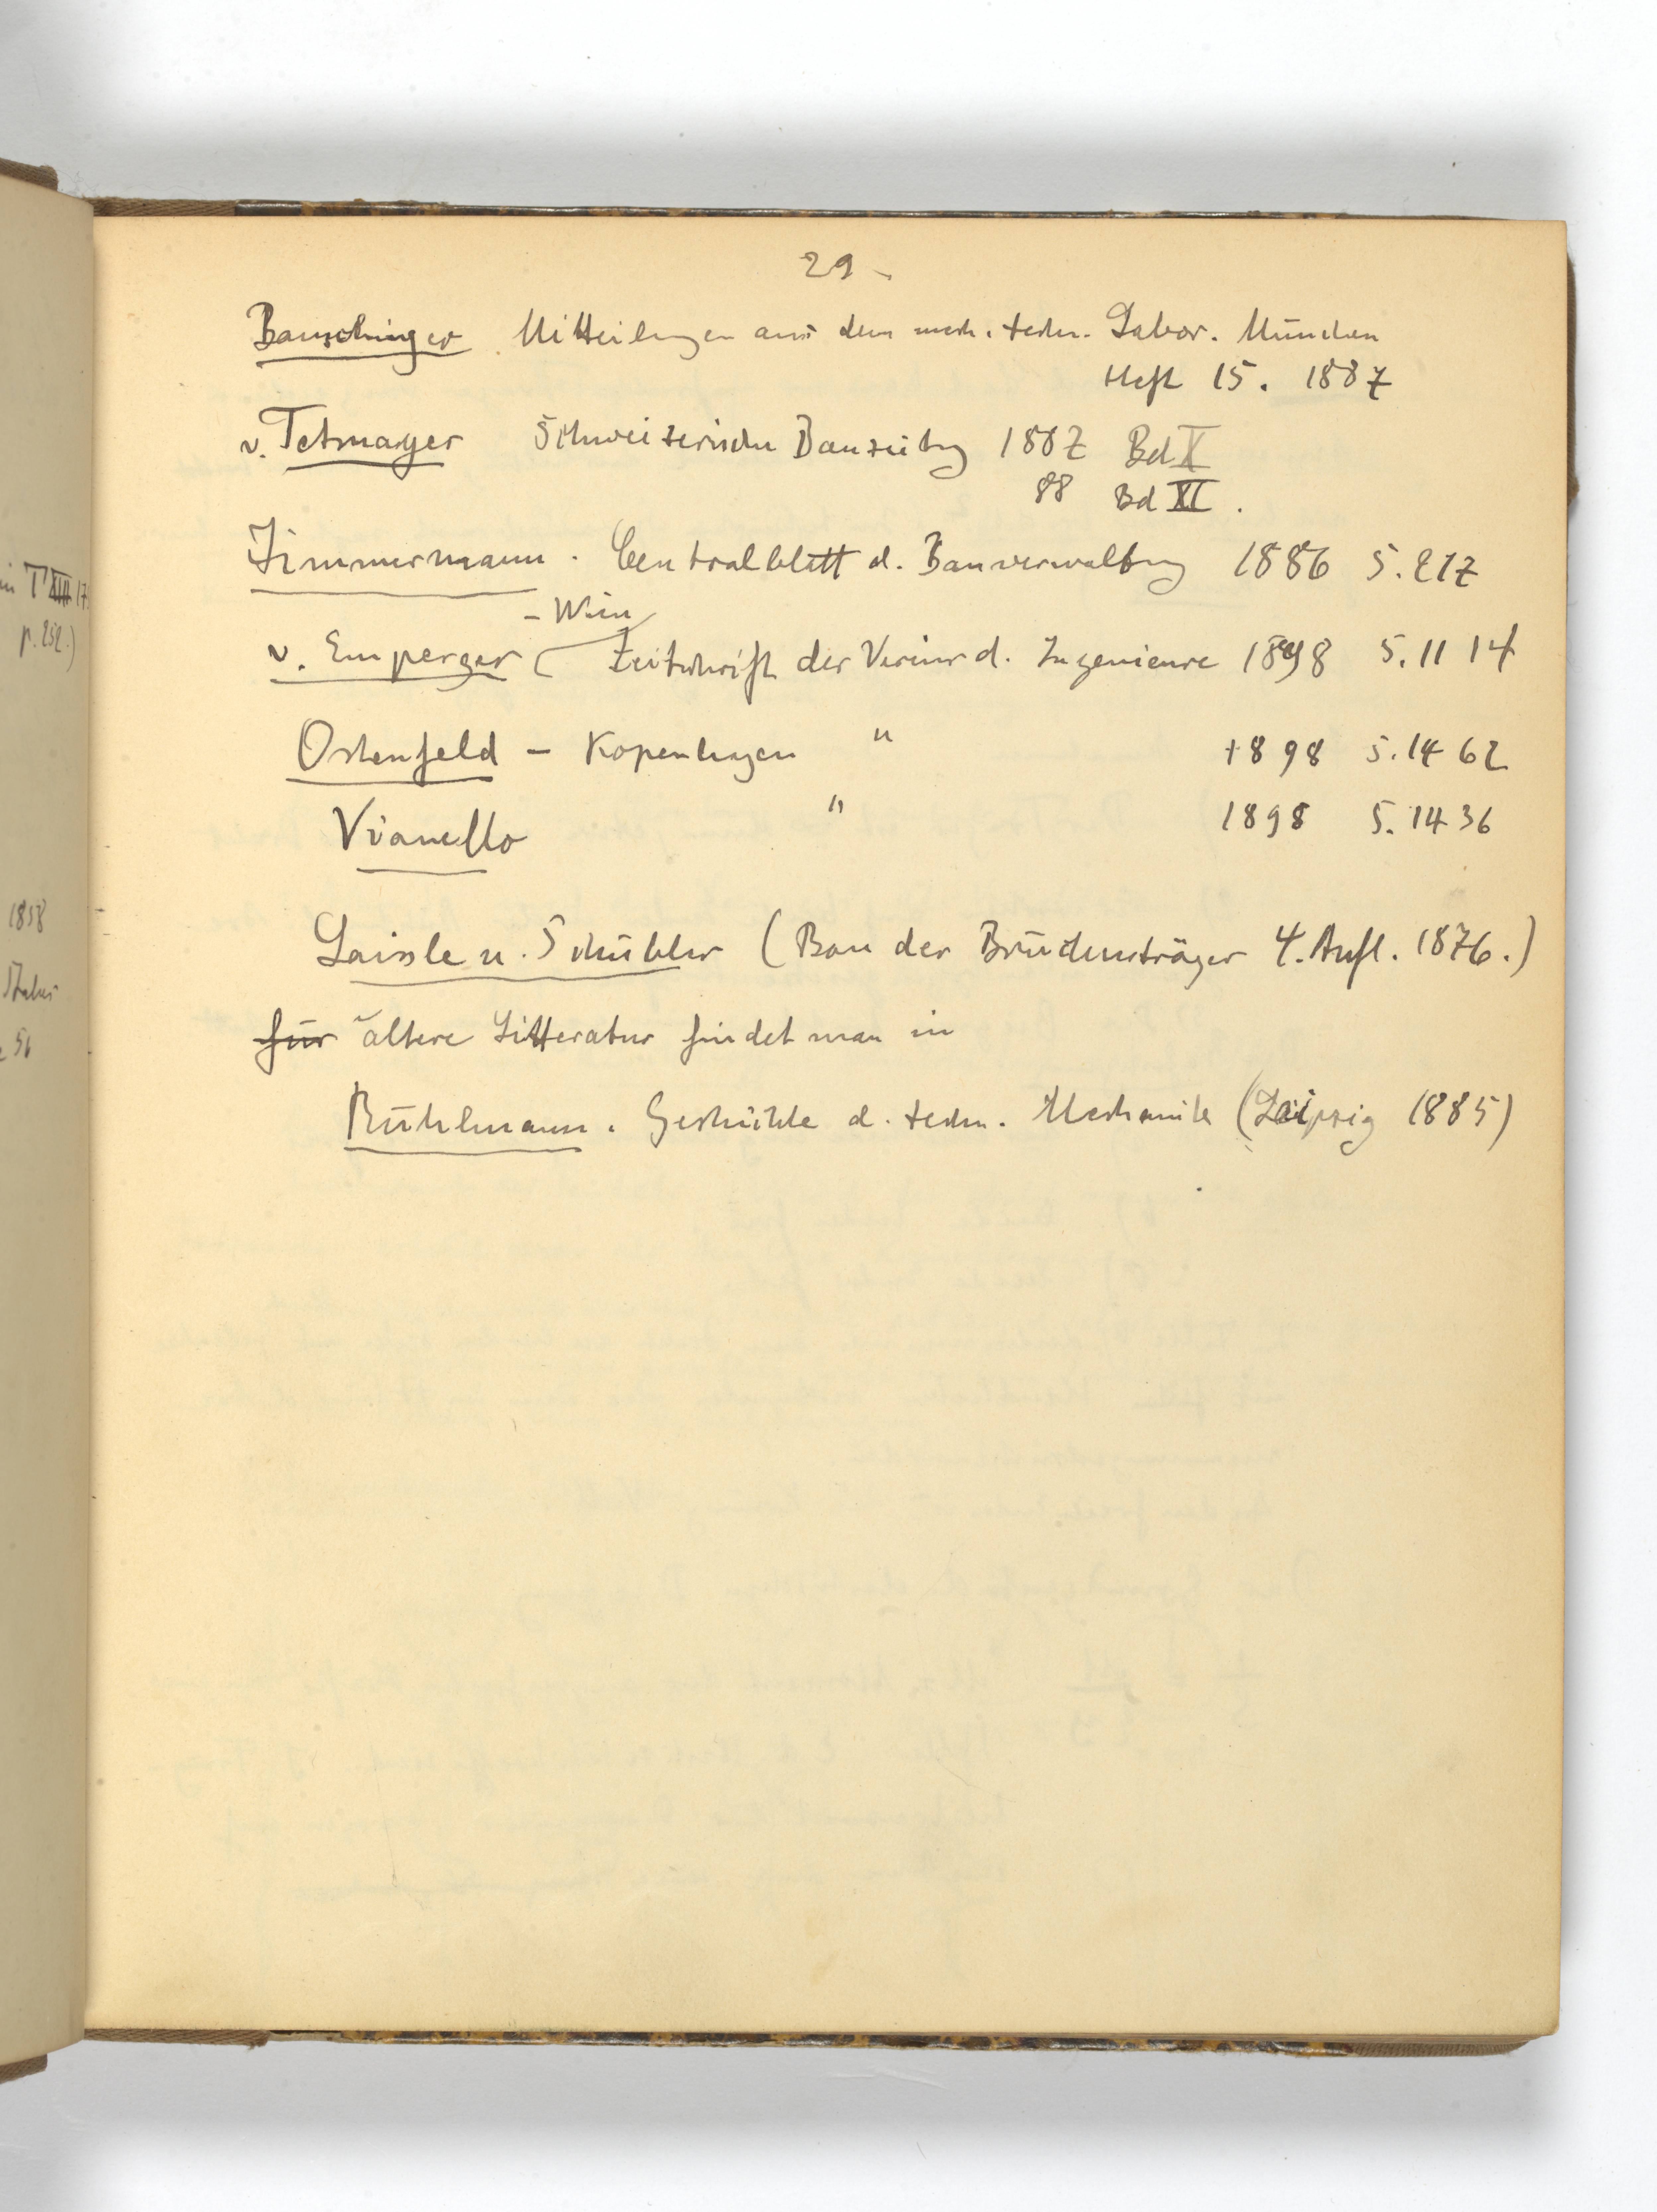 29
Bauschinger Mitteilungen aus dem mech. techn. Labor. München
Heft 15. 1887
v. Tetmayer Schweizerische Bauzeitung 1887 Bd X
88 Bd XI.
Zimmermann. Centralblatt d. Bauverwaltung 1886 S. 217
- Wien
v. Emperger Zeitschrift der Vereins d. Ingenieure 1898 S. 1114
Ostenfeld - Kopenhagen " 1898 S. 1462
Vianello " 1898 S. 1436
Laissle u. Schübler (Bau der Brückenträger 4. Aufl. 1876.)
für ältere Litteratur findet man in
Rühlmann. Geschichte d. techn. Mechanik (Leipzig 1885)
in T XIII 17
p. 252.)
1858
56